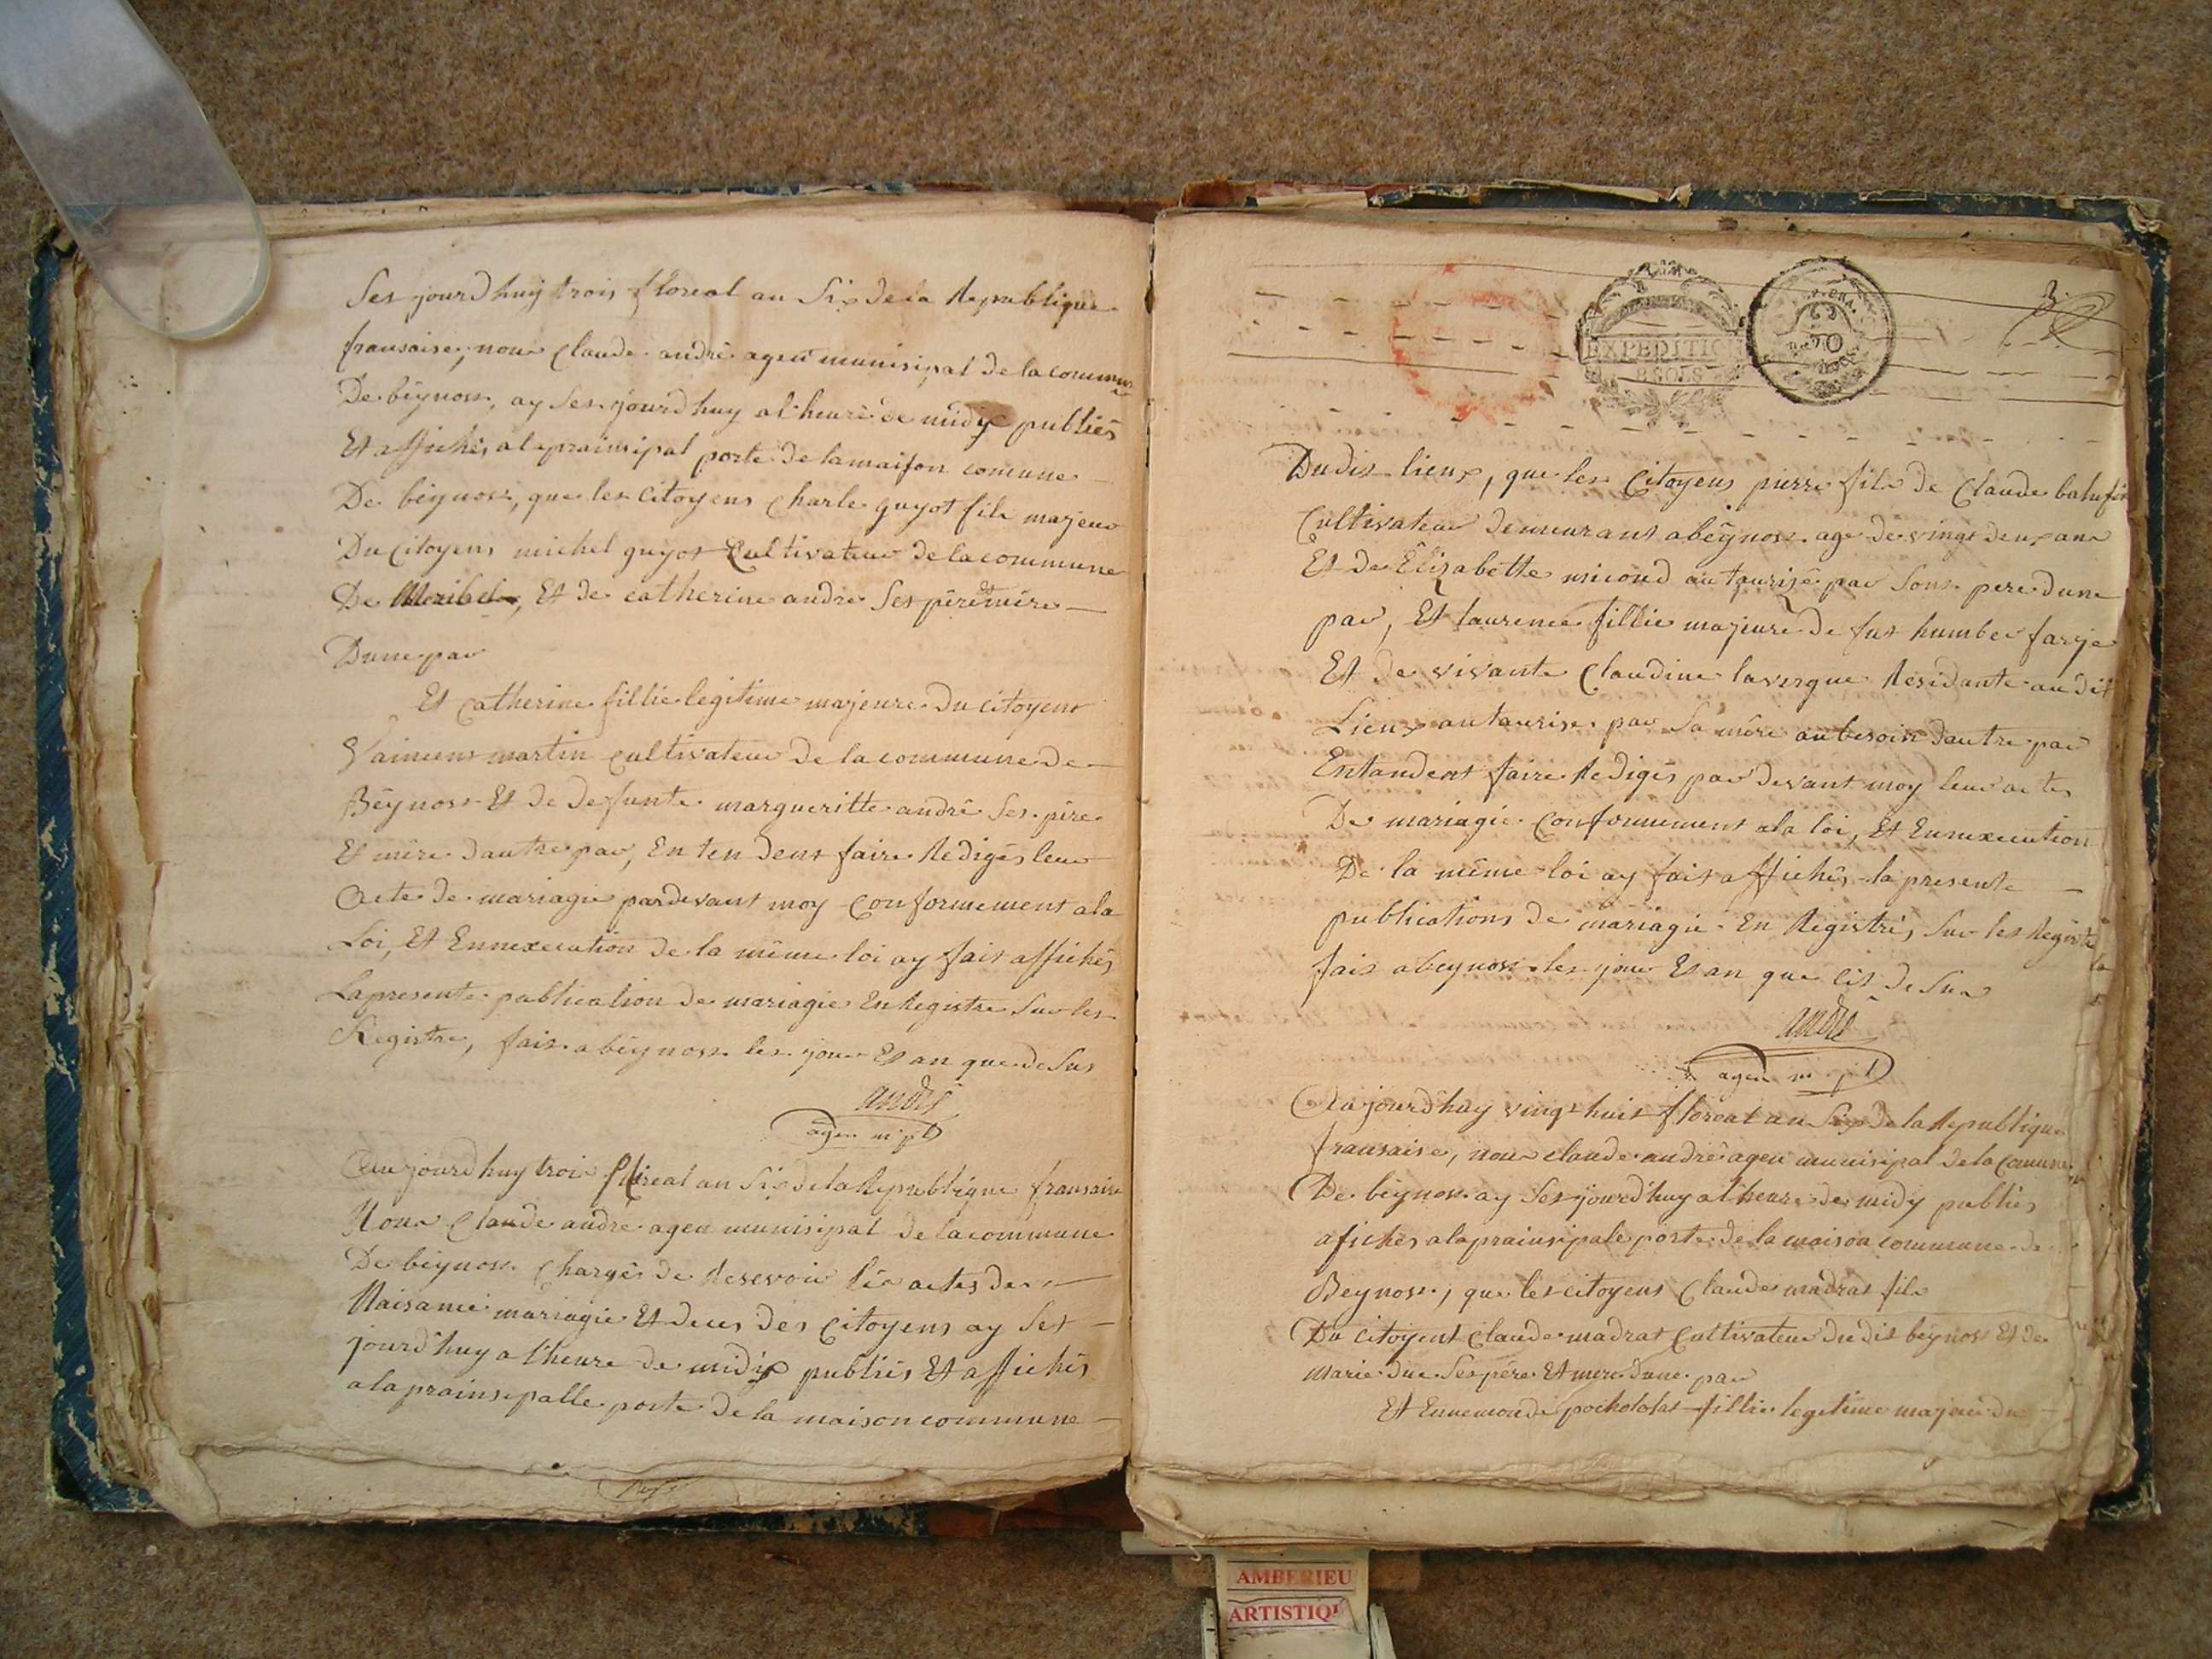 Ses jourdhuy trois floreal an Six de la Republique
fransaise, nous Claude andré agent munisipal de la commune
De béynost, ay Ses jourdhuy al'heure de midy publiés
Et affichés ala prainsipal porte de lamaison comune
De béynost, que les Citoyens Charle guyot fils majeur
Du Citoyens michel guyot Cultivateur de la commune
De Miribel, Et de catherine andre Ses pére et mére
Dune par
Et Catherine fillie legitime majeure Du Citoyent
Vainsent martin Cultivateur de la commune De
Béynost Et de Defunte margueritte andré Ses pére
Et mére dautre par, En ten dent faire Redigés leur
Acte de mariagie pardevant moy Conformement ala
Loi, Et Ennexecution de la même loi ay fait affichés
La presente publication de mariagie EnRegistre Sur les
Registre, fait a béynost les jour Et an que deSus
andré
agen m pl
Aujourdhuy trois floreal an Six dela Republique fransaise
Nous Claude andre agen munisipal de la commune
De béynost Chargés de Resevoir lés actes de
Naisance mariagie Et deces des Citoyens ay Ses
jourdhuy a l'heure de midy publiés Et affichés
ala prainsipalle porte De la maison commune
EXPEDITION
Dudit lieux, que les Citoyens pierre fils de Claude
Cultivateur demeurant a béynost age de vingt deux ans
Et de Élizabette micoud autaurisé par Sont pere dune
par, Et laurence fillie majeure de fut humber farje
Et de vivante Claudine lavergue Résidante au dit
Lieux autaurises par Sa mére aubesoin dautre par
Entandent faire Redigés par devant moy leur actes
De mariagie Conformement ala loi, Et Ennexecution
De la même loi ay fait affichés la presente
publications de mariagie En Registrés Sur les Registre
fait a beynost les jour Et an que cit de Sus
andré
agen m pl
Aujourdhuy vingt huit floreal an Six de la Republique
fransaise, nous claude andré agen munisipal de la Comune
De béynost ay Ses jourdhuy al'heure de midy publiés
afichés ala prainsipale porte de la maison commune de
Beynost, que les citoyens Claude madrat fils
Du Citoyent Claude madrat Cultivateur Dudit béynost Et de
marie duc Ses pére Et mere dune par
Et Ennemonde pocholas fillie legitime majeure du
AMBERIEU
ARTISTIQ